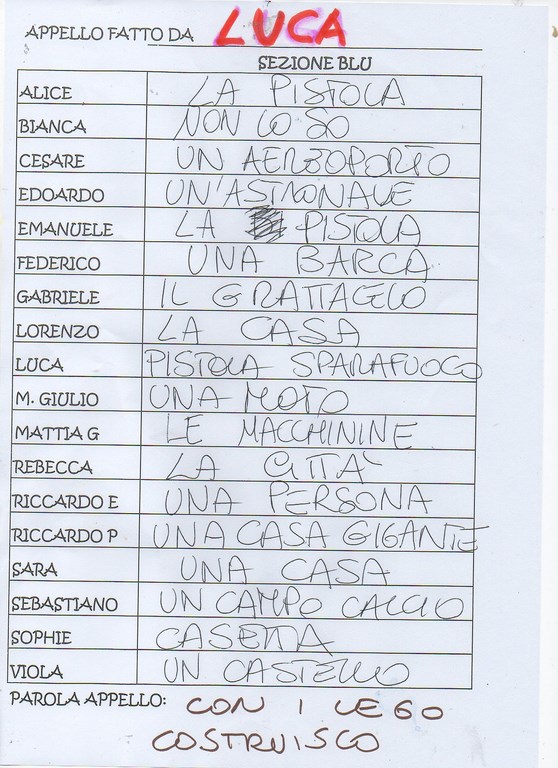 APPELLO FATTO DA LUCA
SEZIONE BLU
ALICE LA PISTOLA
BIANCA NON LO SO
CESARE UN AEREOPORTO
EDOARDO UN'ASTRONAVE
EMANUELE LA PISTOLA
FEDERICO UNA BARCA
GABRIELE IL GRATTACELO
LORENZO LA CASA
LUCA PISTOLA SPARAFUOCO
M. GIULIO UNA MOTO
MATTIA G LE MACCHININE
REBECCA LA CITTÀ
RICCARDO E UNA PERSONA
RICCARDO P UNA CASA GIGANTE
SARA UNA CASA
SEBASTIANO UN CAMPO CALCIO
SOPHIE CASETTA
VIOLA UN CASTELLO
PAROLA APPELLO: CON I LEGO
COSTRUISCO